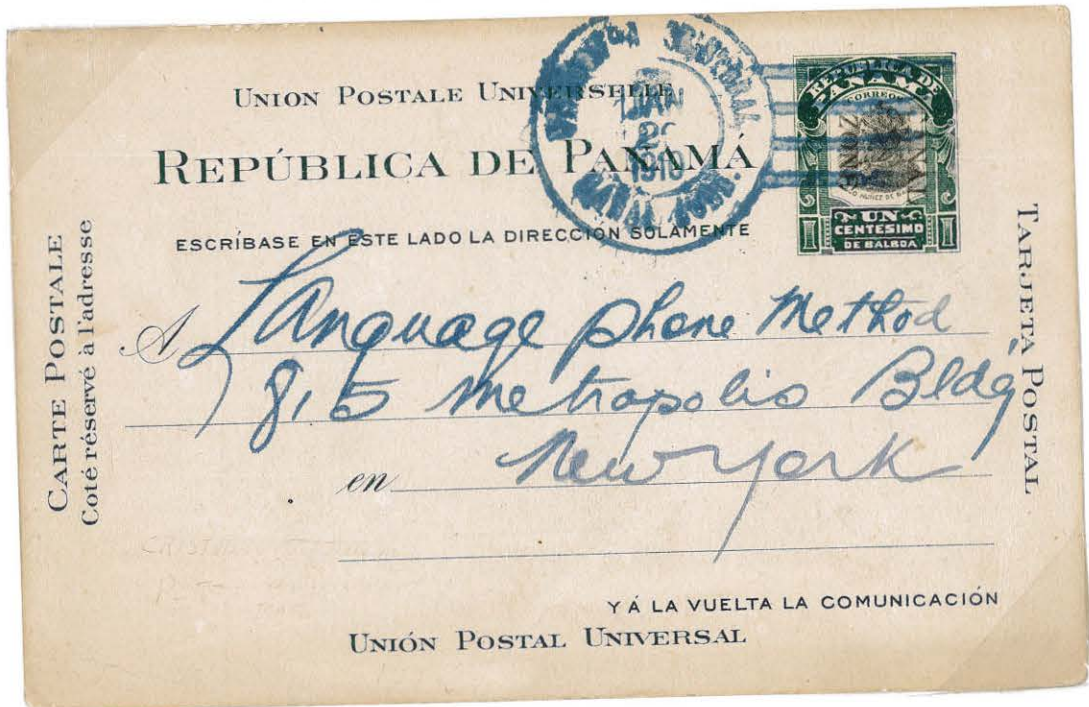 UNION POSTALE UNIVERSELLE
REPÚBLICA DE PANAMÁ
ESCRÍBASE EN ESTE LADO LA DIRECCIÓN SOLAMENTE
JAN
REPUBLICA DE
PANAMA
CORREOS
ZONE
UN
CENTESIMO
DE BALBOA
CARTE POSTALE
Coté réservé à l'adresse
TARJETA POSTAL
A Language phone Method
815 Metropolis Bldg
en New York
Y Á LA VUELTA LA COMUNICACIÓN
UNIÓN POSTAL UNIVERSAL